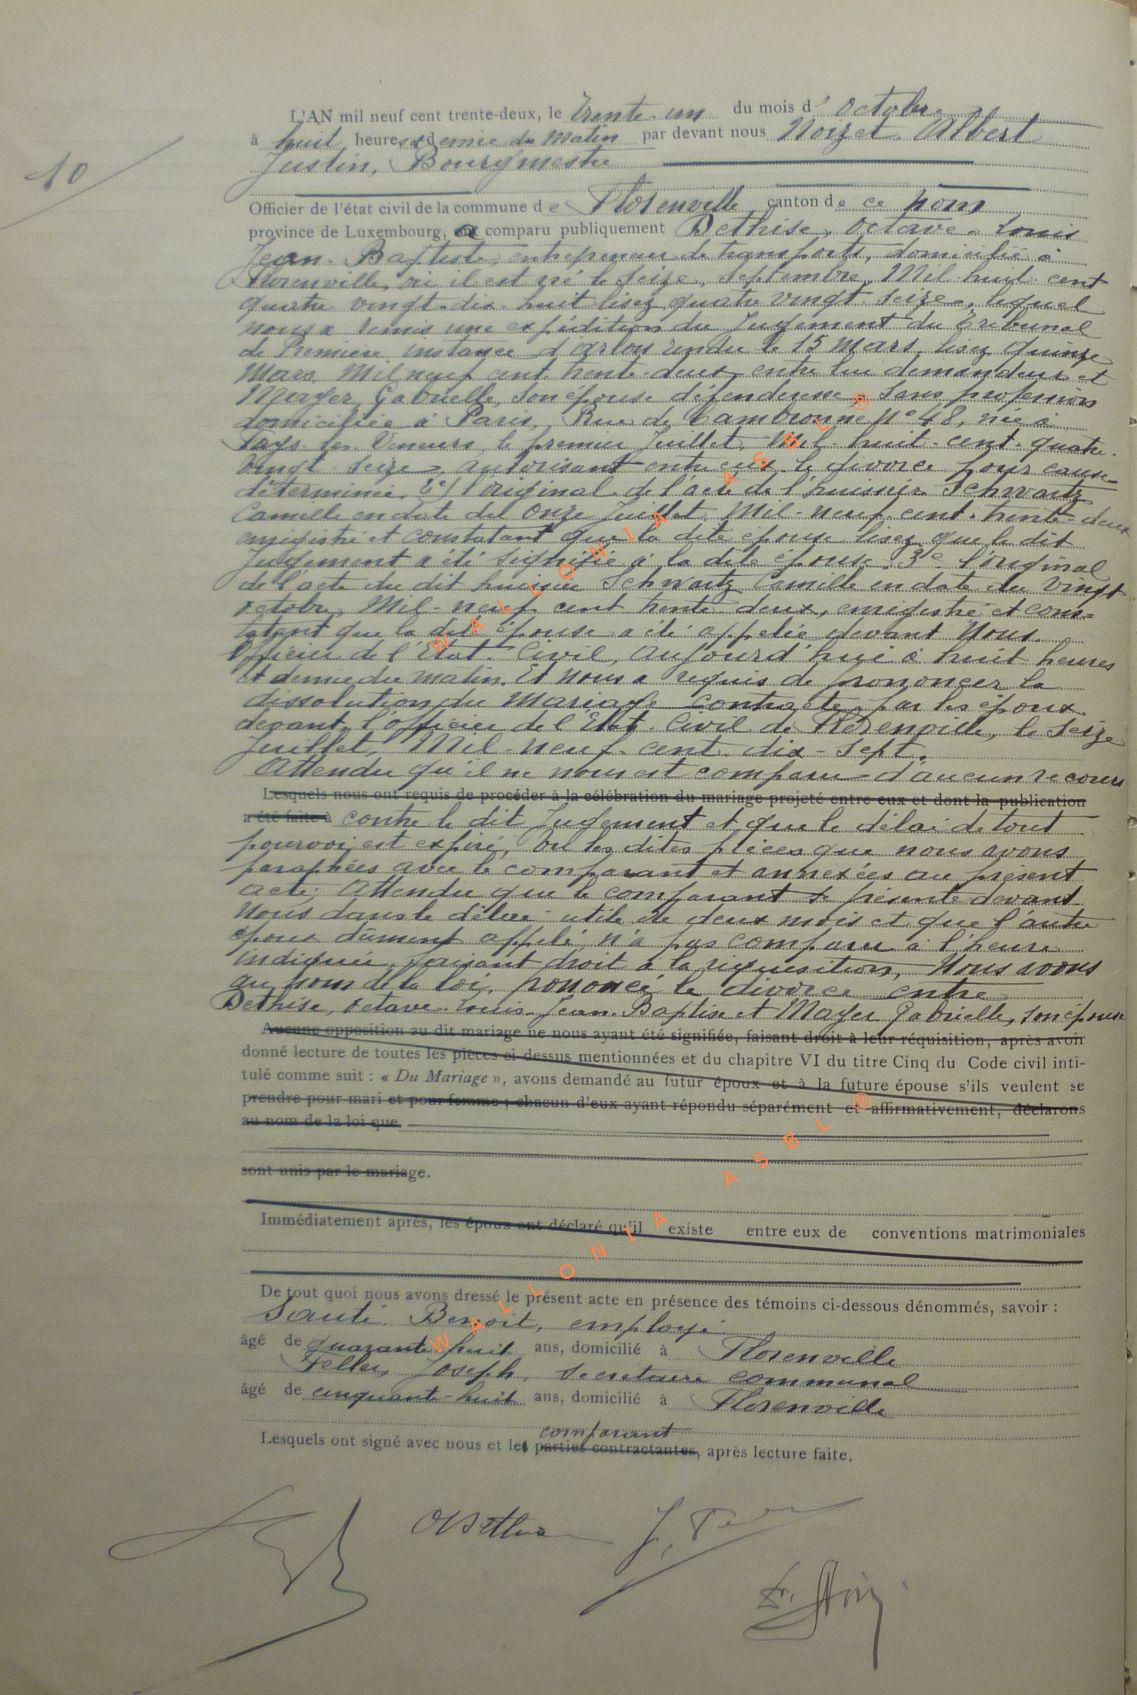 10
L'AN mil neuf cent trente-deux, le Trente-un du mois d' octobre
à huit heures et demie du matin par devant nous Noizet Albert
Justin, Bourgmestre
Officier de l'état civil de la commune de Florenville canton de ce nom
province de Luxembourg, a comparu publiquement Dethise, Octave-Louis
Jean-Baptiste, entrepreneur de transports, domicilié à
Florenville, où il est né le seize, septembre, Mil-huit-cent
quatre-vingt-dix-huit lisez quatre-vingt-seize, lequel
nous a remis une expédition du Jugement du Tribunal
de Première instance d'Arlon rendu le 15 Mars, lisez quinze
Mars, Mil neuf cent trente-deux, entre lui demandeur et
Mayer, Gabrielle, son épouse défenderesse, sans profession
domiciliée à Paris, Rue de Cambronne N° 48, née à
les Veneurs, le premier Juillet, Mil-huit-cent-quatre-
vingt-seize, autorisant entre eux le divorce pour cause
déterminée, 2°/ l'original de l'acte de l'huissier Schwartz
Camille en date du onze Juillet, Mil-neuf cent-trente-deux
enregistré et constatant que la dite épouse lisez que le dit
Jugement a été signifié à la dite épouse. 3° l'original
de l'acte du dit huissier Schwartz Camille en date du vingt
octobre, Mil-neuf cent trente deux, enregistré et cons-
tatant que la dite épouse a été appelée devant Nous
officier de l'Etat-Civil, aujourd'hui à huit heures
et demie du matin. Et nous a requis de prononcer la
dissolution du mariage contracté par les époux
devant l'officier de l'Etat-Civil de Florenville, le seize
Juillet, Mil-neuf-cent-dix-sept.
Attendu qu'il ne nous est comparu d'aucun recours
Lesquels nous ont requis de procéder à la célébration du mariage projeté entre eux et dont la publication
a été faite à contre le dit Jugement et que le délai de tout
pourvoi est expiré, Vu les dites pièces que nous avons
paraphées avec le comparant et annexées au présent
acte; Attendu que le comparant se présente devant
Nous dans le délai utile de deux mois et que l'autre
époux dûment appelé, n'a pas comparu à l'heure
indiquée, faisant droit à la réquisition, Nous avons
au nom de la loi, prononcé le divorce entre
Dethise, Octave-Louis-Jean-Baptiste et Mayer Gabrielle, son épouse
Aucune opposition au dit mariage ne nous ayant été signifiée, faisant droit à leur réquisition, après avoir
donné lecture de toutes les pièces ci-dessus mentionnées et du chapitre VI du titre Cinq du Code civil inti-
tulé comme suit : « Du Mariage », avons demandé au futur époux et à la future épouse s'ils veulent se
prendre pour mari et pour femme ; chacun d'eux ayant répondu séparément et affirmativement, déclarons
au nom de la loi que
sont unis par le mariage.
Immédiatement après, les époux ont déclaré qu'il existe entre eux de conventions matrimoniales
De tout quoi nous avons dressé le présent acte en présence des témoins ci-dessous dénommés, savoir :
Benoit, employé
âgé de quarante-huit ans, domicilié à Florenville
Feller, Joseph, Secrétaire communal
âgé de cinquante-huit ans, domicilié à Florenville
comparant
Lesquels ont signé avec nous et les parties contractantes, après lecture faite.
WALLONIA ASBL ®
WALLONIA ASBL ®